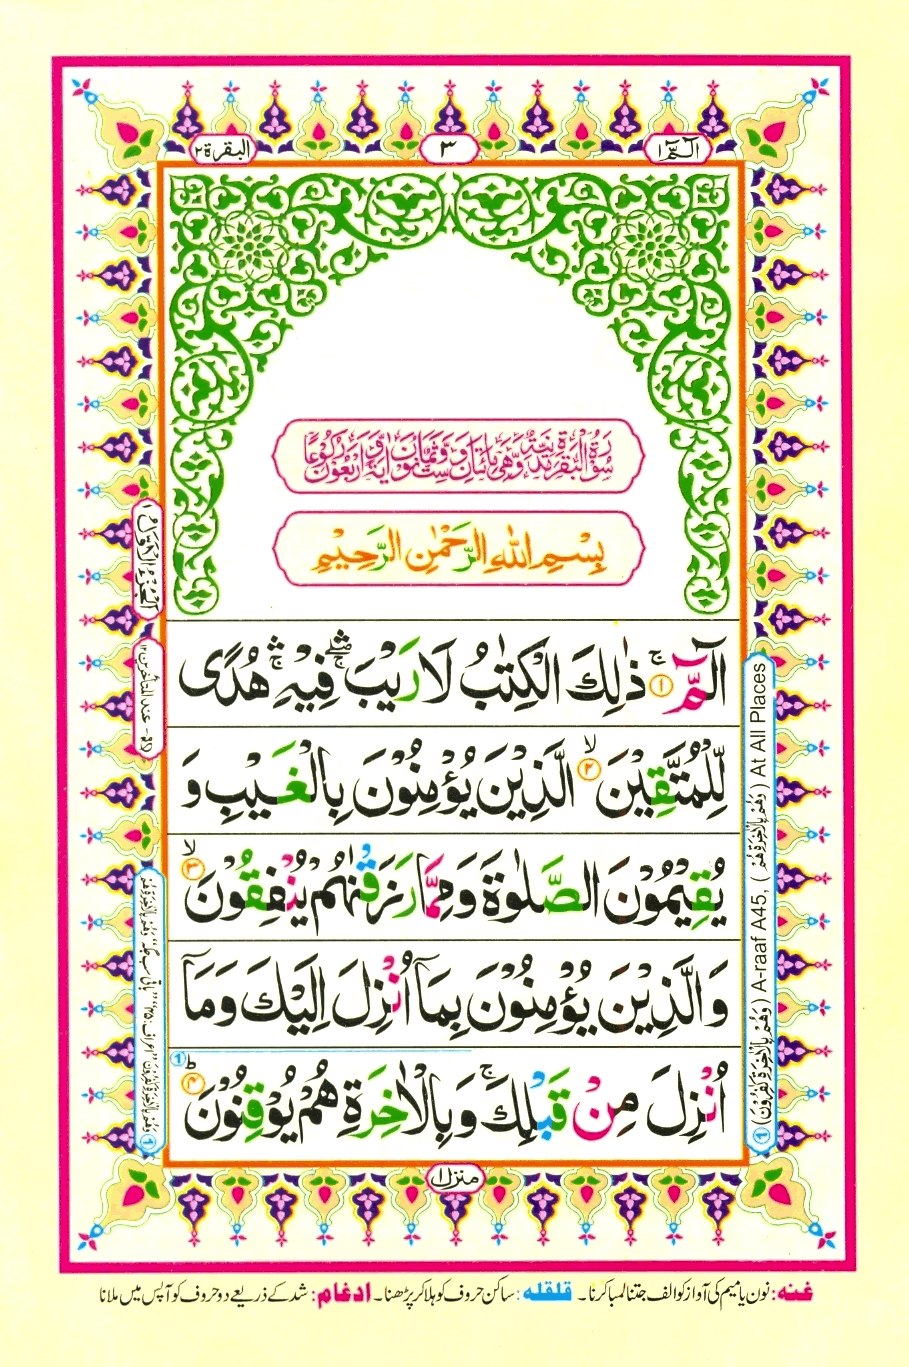 الٓمّٓ ١
٣
البقرة ٢
سُوْرَةُ الْبَقَرَةِ مَدَنِيَّةٌ وَّهِيَ مِائَتَانِ وَسِتٌّ وَّثَمَانُوْنَ اٰيَةً وَّاَرْبَعُوْنَ رُكُوْعًا
بِسْمِ اللّٰهِ الرَّحْمٰنِ الرَّحِيْمِ
الٓمّٓ ۚ ١ ذٰلِكَ الْكِتٰبُ لَا رَيْبَ ۛۖۚ فِيْهِ ۛۚ هُدًى
لِّلْمُتَّقِيْنَ ۙ ٢ الَّذِيْنَ يُؤْمِنُوْنَ بِالْغَيْبِ وَ
يُقِيْمُوْنَ الصَّلٰوةَ وَمِمَّا رَزَقْنٰهُمْ يُنْفِقُوْنَ ۙ ٣
وَالَّذِيْنَ يُؤْمِنُوْنَ بِمَاۤ اُنْزِلَ اِلَيْكَ وَمَاۤ
اُنْزِلَ مِنْ قَبْلِكَ ۚ وَبِالْاٰخِرَةِ هُمْ يُوْقِنُوْنَ ؕ ٤
منزل ١
① (وَهُمْ بِالْاٰخِرَةِ كٰفِرُوْنَ) A-raaf A45, (وَهُمْ بِالْاٰخِرَةِ هُمْ) At All Places
غنه: نون یا میم کی آواز کو الف جتنا لمبا کرنا۔ قلقله: ساکن حروف کو ہلا کر پڑھنا۔ ادغام: شد کے ذریعے دو حروف کو آپس میں ملانا